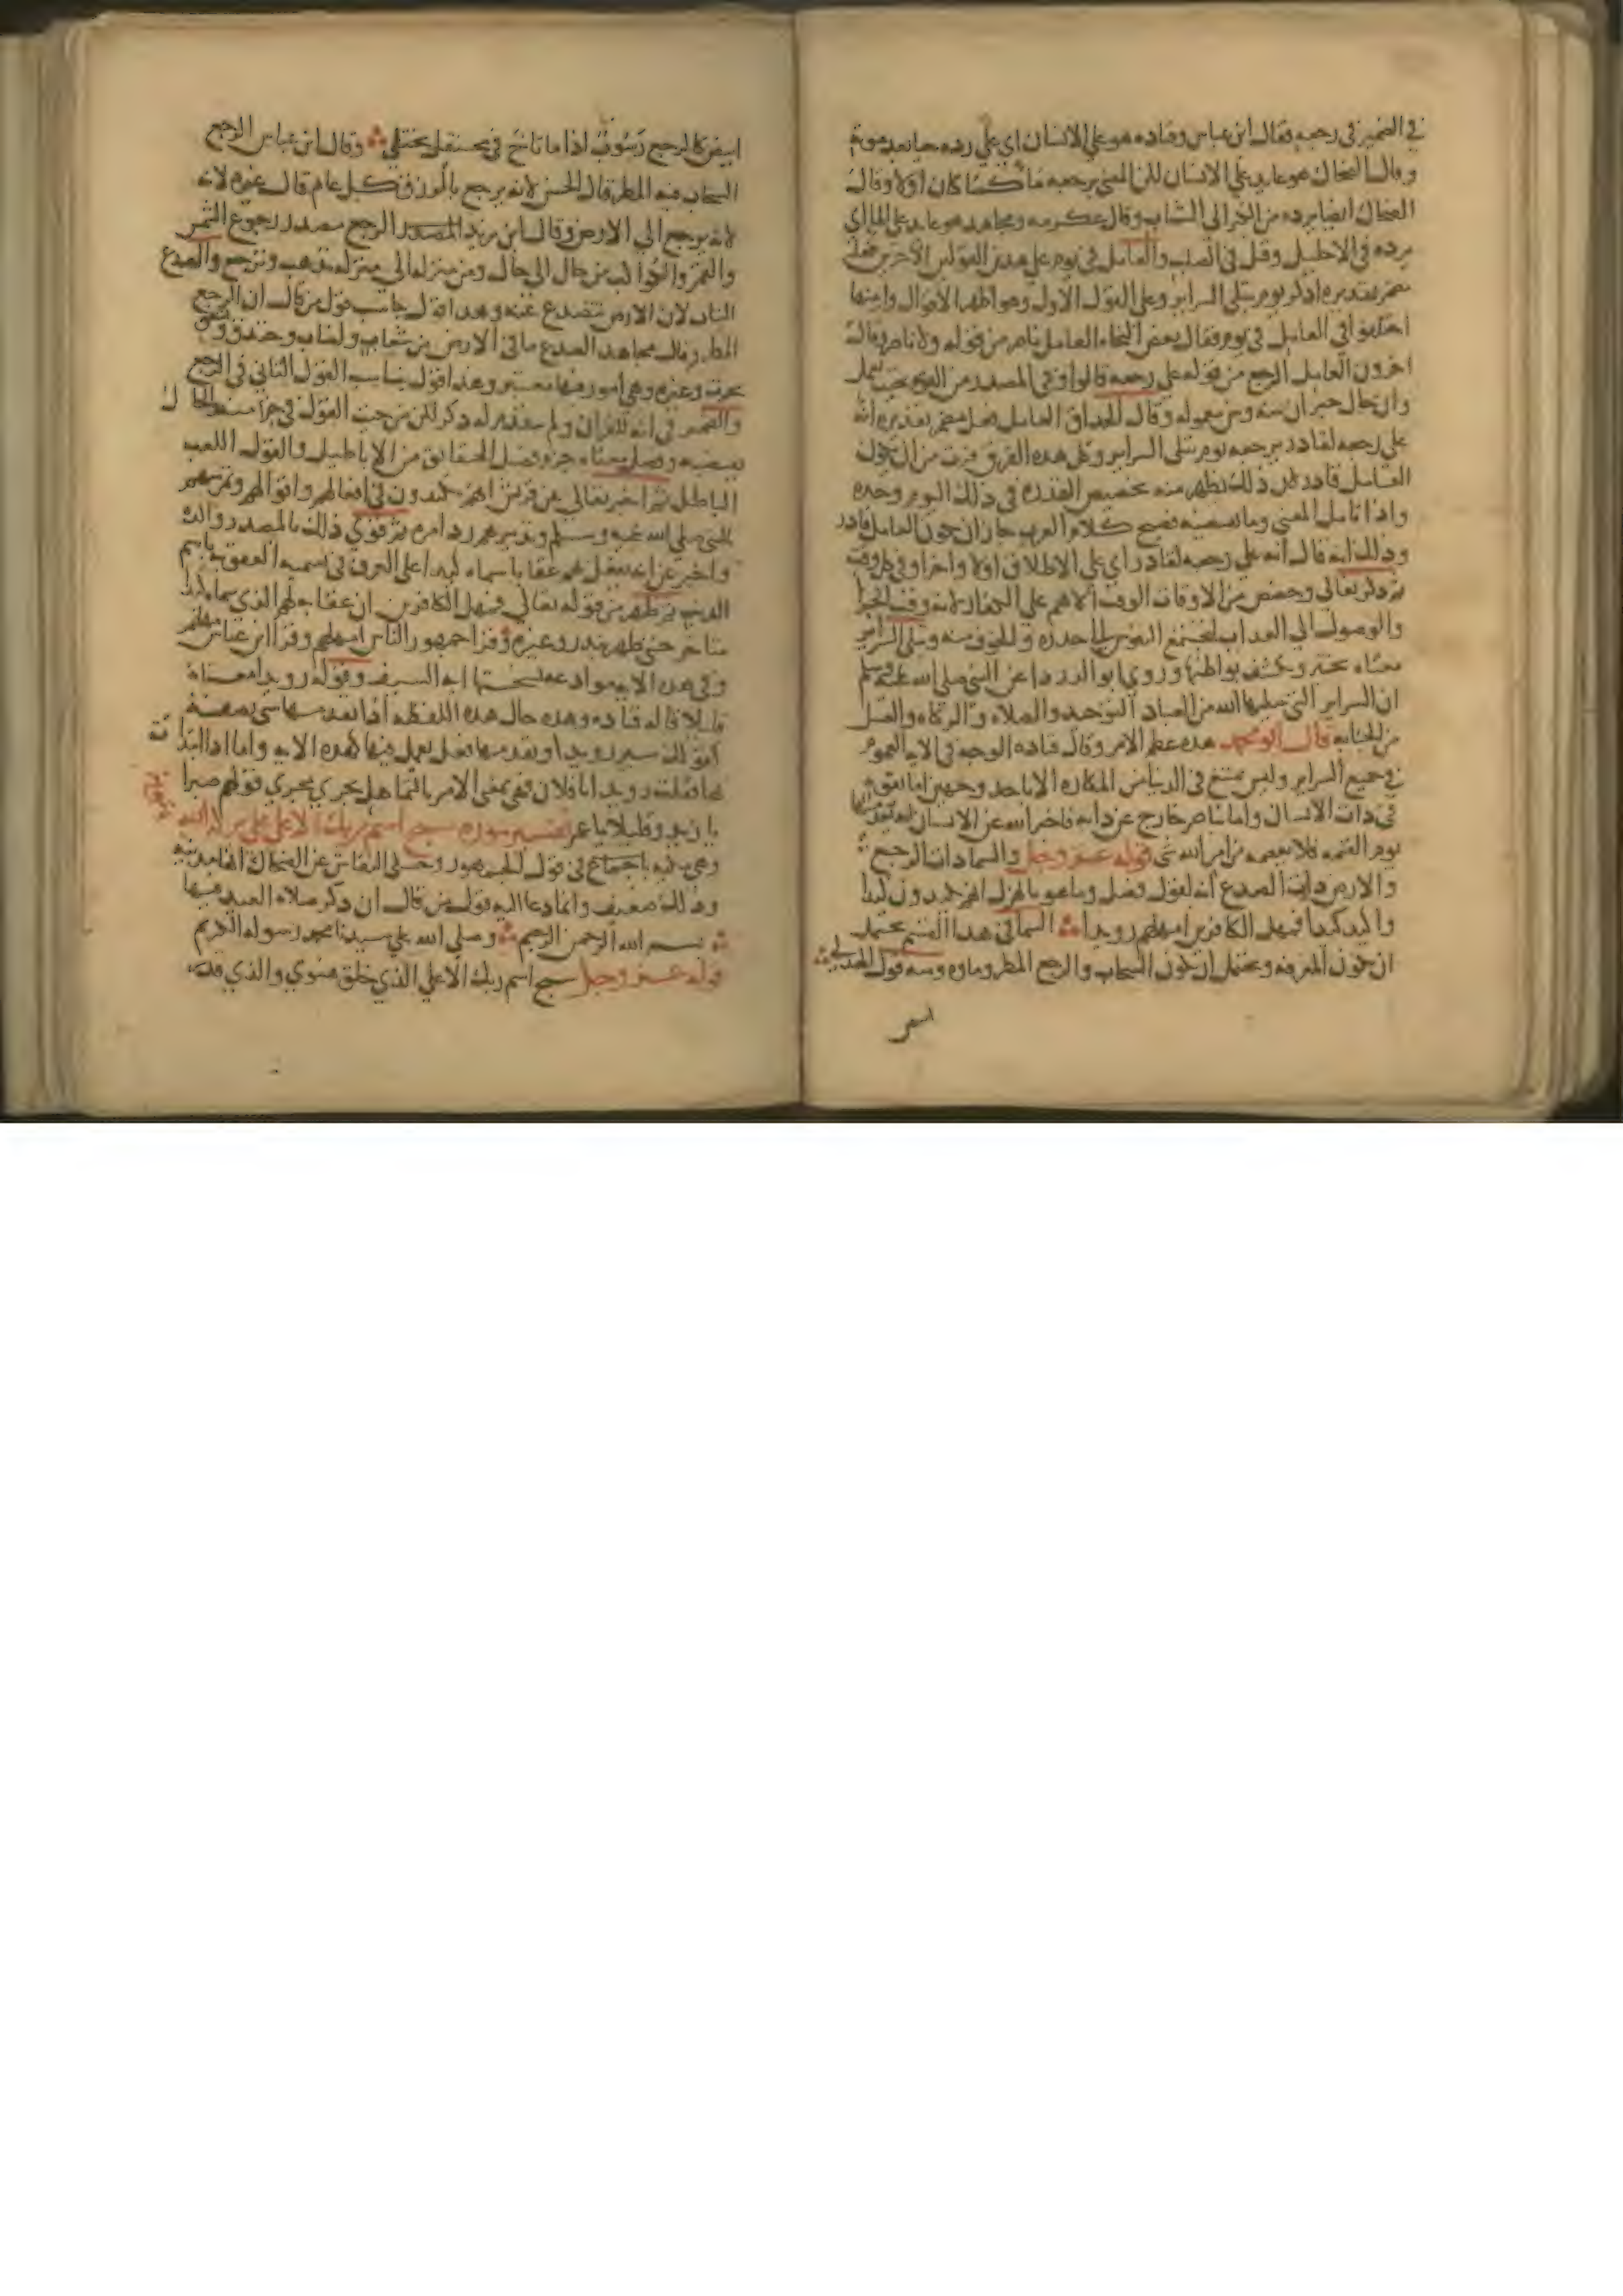 في الضمير في رجعه فقال ابن عباس وقتادة هو على الانسان اي على رده حيا بعد موته
وقال الضحاك هو عايد على الانسان لكن المعنى يرجعه ماء كما كان اولا وقال
الضحاك ايضا يرده من الكبر الى الشباب وقال عكرمه ومجاهد هو عايد على الماء اي
يرده في الاحليل وقيل في الصلب والعامل في يوم على هذين القولين الاخرين فعل
مضمر تقديره اذكر يوم تبلى السراير وعلى القول الاول وهو اظهر الاقوال وابينها
اختلفوا في العامل في يوم فقال بعض النحاه العامل ناصر من قوله ولا ناصر وقالت
اخرون العامل الرجع من قوله على رجعه قالوا وفي المصدر من القوه بحيث يعمل
وان حال خبر ان بينه وبين معموله وقال الحذاق العامل فعل مضمر تقديره انه
على رجعه لقادر يرجعه يوم تبلى السراير وكل هذه الفرق فرت من ان يكون
العامل قادر لان ذلك يظهر منه تخصيص القدره في ذلك اليوم وحده
واذا تامل المعنى وما يقتضيه فصيح كلام العرب جاز ان يكون العامل قادر
وذلك انه قال انه على رجعه لقادر اي على الاطلاق اولا واخرا وفي كل وقت
ثم ذكر تعالى وخصص من الاوقات الوقت الاهم على الكفار لانه وقت الجزا
والوصول الى العذاب ليجتمع النفوس الى حذره والخوف منه وتبلى السراير
معناه تختبر وتكشف بواطنها وروى ابو الدرداء عن النبي صلى الله عليه وسلم
ان السراير التي يبتليها الله من العباد التوحيد والصلاه والزكاه والغسل
من الجنابه قال ابو محمد هذه عظم الامر وقال قتاده الوجه في الايه العموم
في جميع السراير وليس يمتنع في الدنيا من المكاره الا باحد وجهين اما بقوه
في ذات الانسان واما بناصر خارج عن ذاته فاخبر الله عن الانسان انه يعدمهما
يوم القيمه فلا يعصمه من امر الله شي قوله عز وجل والسما ذات الرجع
والارض ذات الصدع انه لقول فصل وما هو بالهزل انهم يكيدون كيدا
واكيد كيدا فمهل الكافرين امهلهم رويدا السما في هذا القسم يحتمل
ان تكون المعروفه ويحتمل ان تكون السحاب والرجع المطر وماوه ومنه قول الهذلي
ابيض
ابيض كالرجع رسوب اذا ما ثاخ في محتفل يختلي وقال ابن عباس الرجع
السحاب فيه المطر قال الحسن لانه يرجع بالرزق كل عام قال غيره لانه
لانه يرجع الى الارض وقال ابن زيد الرجع مصدر رجوع الشمس
والقمر والكواكب من حال الى حال ومن منزله الى منزله تذهب وترجع والصدع
النبات لان الارض تتصدع عنه وهذا قول يناسب قول من قال ان الرجع
المطر وقال مجاهد الصدع ما في الارض من شعاب ولصاب وخندق وشقوق
بحرث وغيره وهي امور فيها معتبر وهذا قول يناسب القول الثاني في الرجع
والضمير في انه للقران ولم يتقدم له ذكر لكن من حيث القول في جزء منه والحال
يقتضيه وفصل معناه جزم فصل الحقايق من الاباطيل والهزل اللعب
الباطل ثم اخبر تعالى عن قريش انهم يكيدون في افعالهم واقوالهم وتمرسهم
بالنبي صلى الله عليه وسلم وتدبيرهم رد امره ثم قوى ذلك بالمصدر واكده
واخبر عن انه يفعل بهم عقابا سماه كيدا على العرف في تسميه العقوبة باسم
الذنب ثم ظهر من قوله تعالى فمهل الكافرين ان عقابه لهم الذي سماه كيدا
متاخر حتى ظهر ببدر وغيره وقرا جمهور الناس امهلهم وقرا ابن عباس مهلهم
وفي هذه الايه موادعه نسختها ايه السيف وقوله رويدا معناه
قليلا قاله قتاده وهذه حال هذه اللفظه اذا تقدمها شي تصفه
كقولك سير رويدا او تقدمها فعل يعمل فيها كهذه الايه واما اذا ابتدا ت
بها فقلت رويدا يا فلان فهي بمعنى الامر بالتماهل يجري مجرى قولهم صبرا
يا زيد وقليلا يا عمرو تفسير سوره سبح اسم ربك الاعلى
وهي مكيه باجماع في قول الجمهور وحكى النقاش عن الضحاك انها مدنيه
وذلك ضعيف وانما دعا اليه قول من قال ان ذكر صلاه العيد فيها
بسم الله الرحمن الرحيم وصلى الله على سيدنا محمد رسوله الكريم
قوله عز وجل سبح اسم ربك الاعلى الذي خلق فسوى والذي قدر